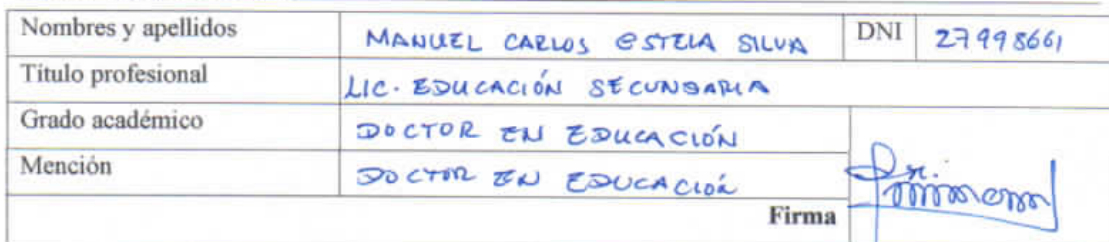 Nombres y apellidos MANUEL CARLOS ESTELA SILVA DNI 27998661
Titulo profesional LIC. EDUCACIÓN SECUNDARIA
Grado académico DOCTOR EN EDUCACIÓN
Mención DOCTOR EN EDUCACIÓN
Firma